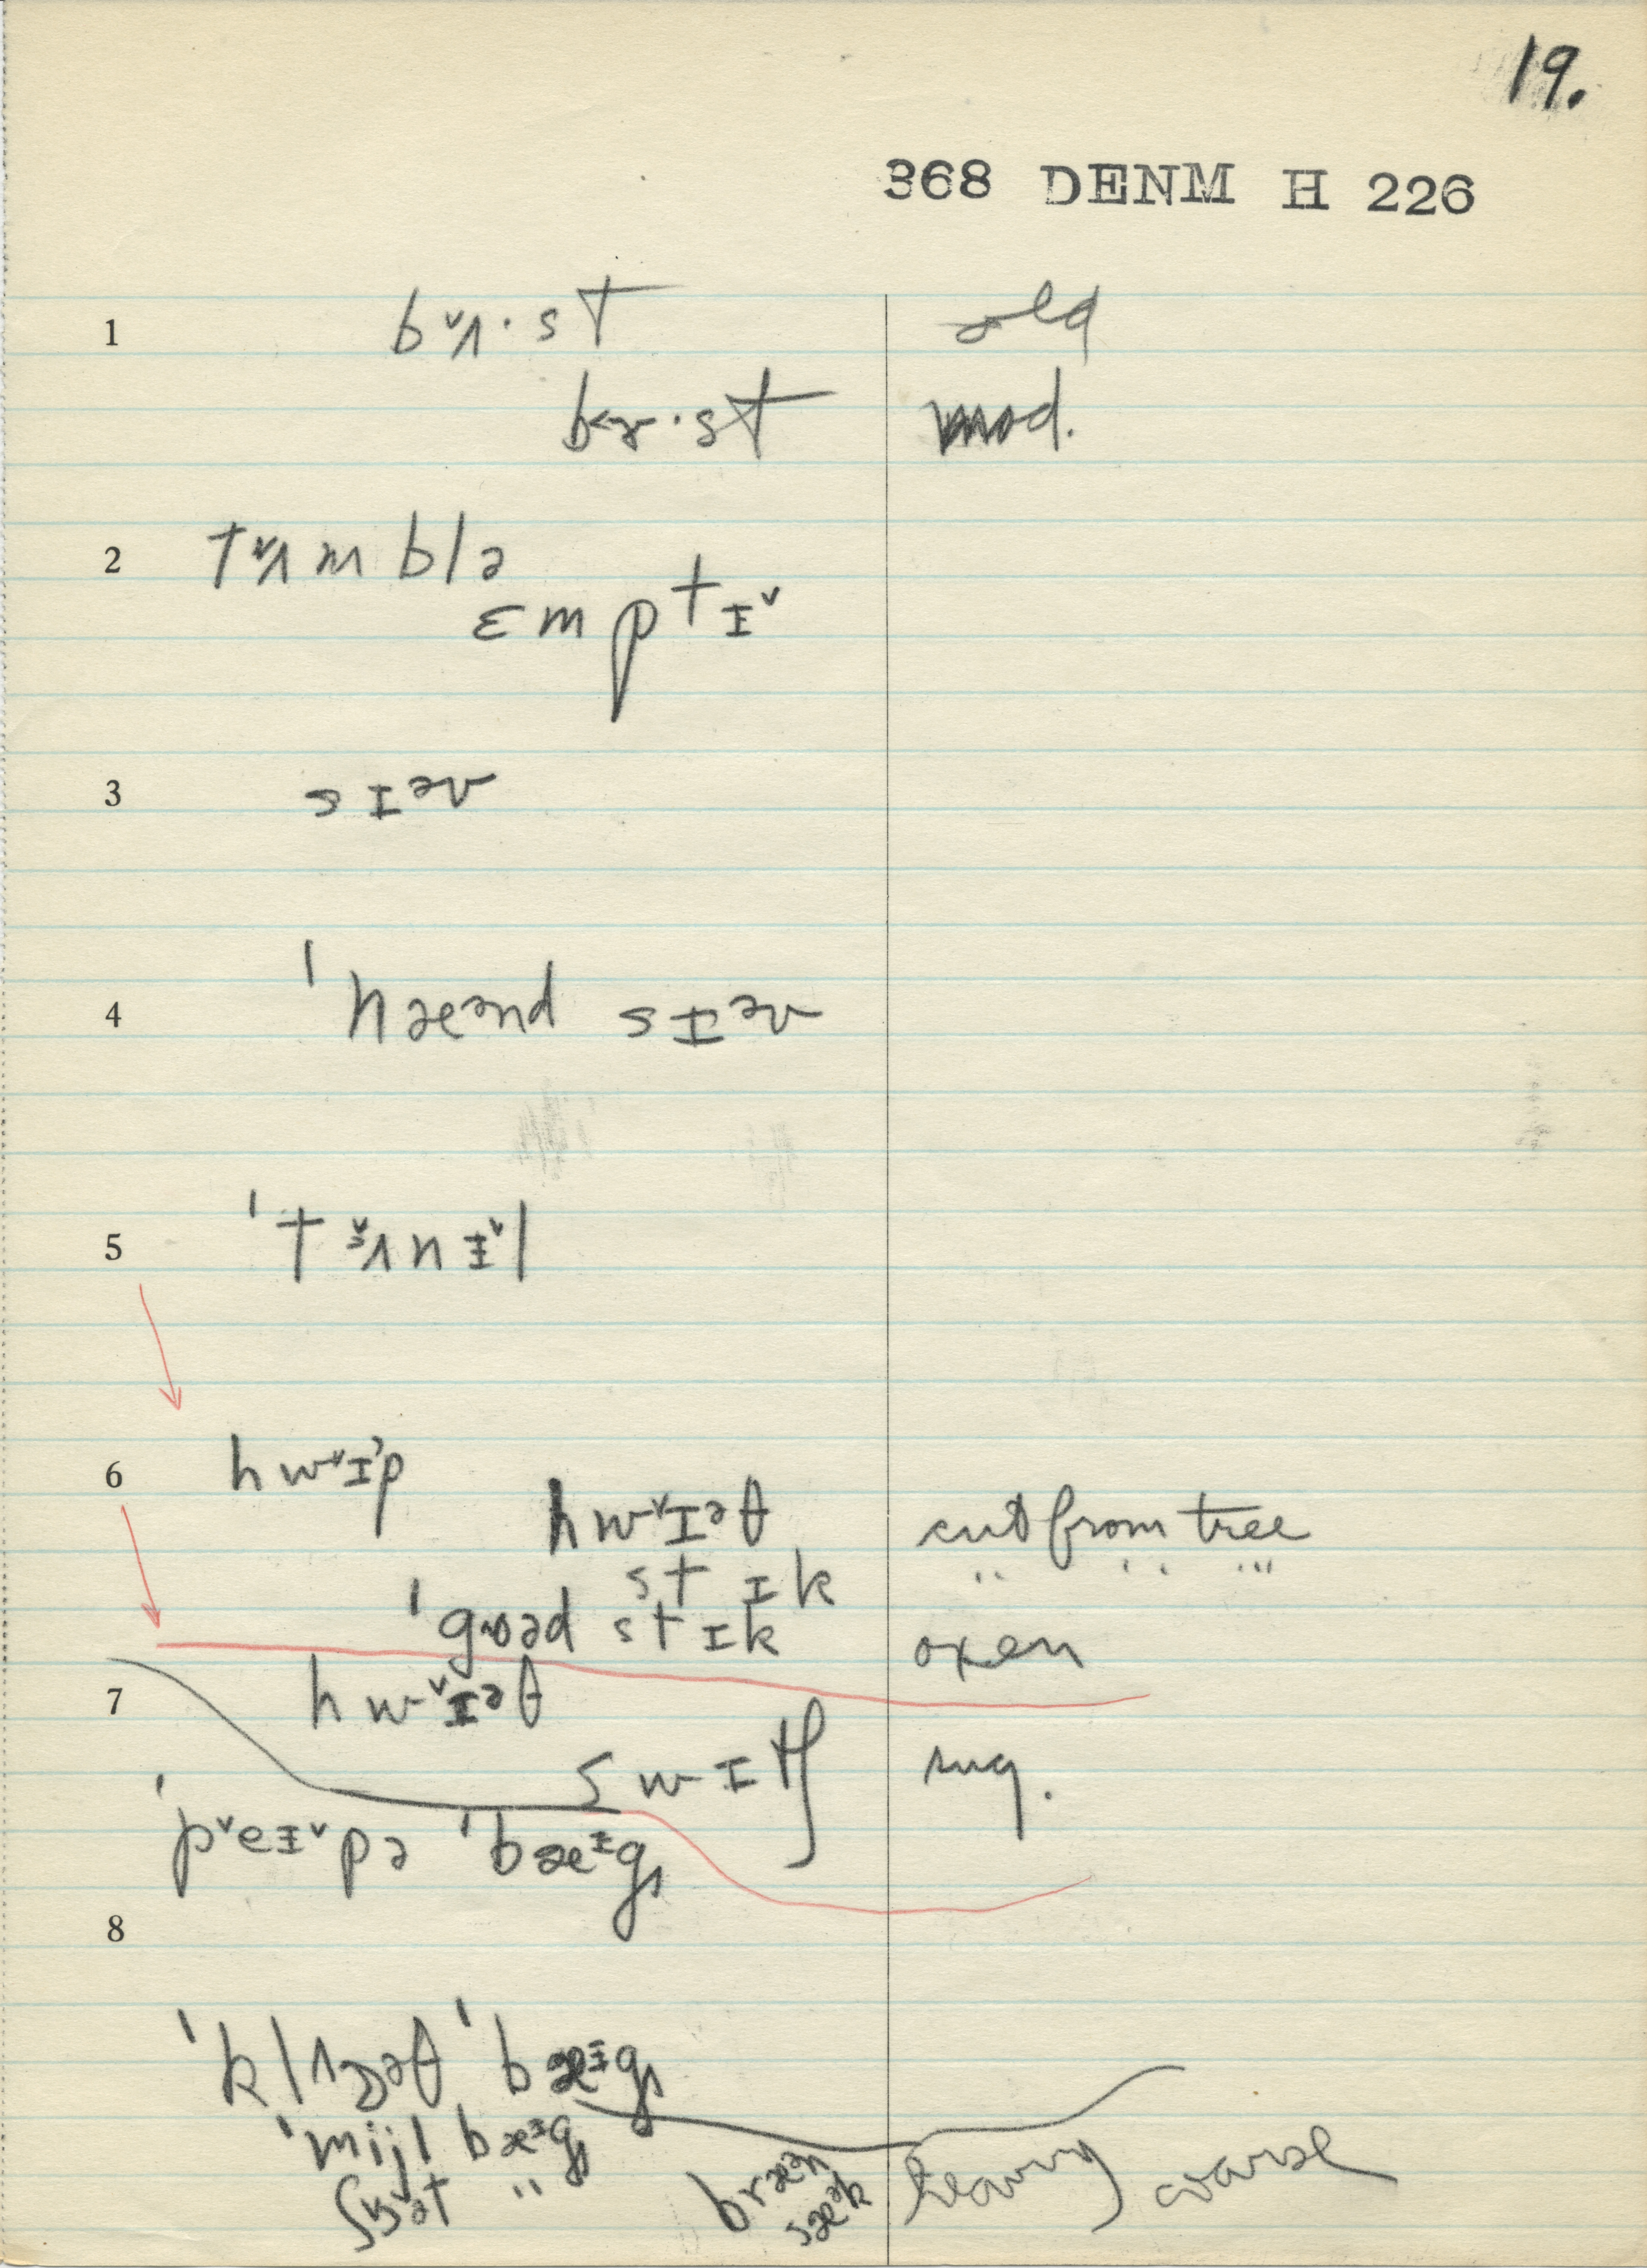 19.
368 DENM H 226
1 bᵛʌ·st old
b˂ɤ·st mod.
2 tᵛʌmblə
ɛmptɪᵛ
3 sɪᵊv
4 ˈhæᵊnd sɪᵊv
5 ˈtᵛʌnɪᵛl
6 hwᵛɪp
hwᵛɪᵊθ cut from tree
stɪk " " "
ˈgoəd stɪk oxen
7 hwᵛɪᵊθ
swɪtʃ sug.
ˈpᵛeɪᵛpə ˈbæᶦg
8
ˈklɔəθ ˈbæᶦg
ˈmijl bæᶦg
bræᵊn heavy coarse
sæᵊk